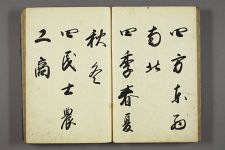 四方東西
南北
四季春夏
秋冬
四民士農
工商